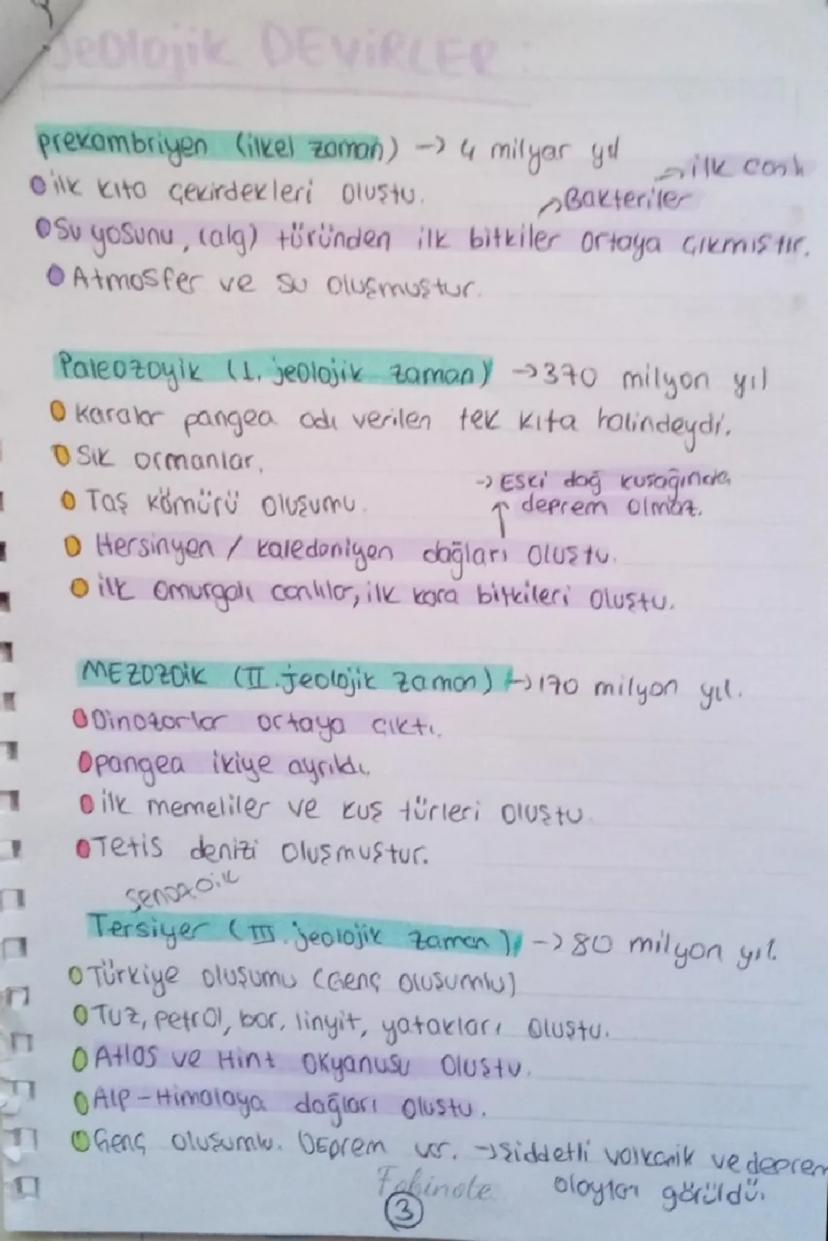 Jeolojik DEVİRLER :
prekambriyen (ilkel zaman) → 4 milyar yıl
→ ilk canlı
● ilk kıta çekirdekleri oluştu.
→ Bakteriler
● Su yosunu, (alg) türünden ilk bitkiler ortaya çıkmıştır.
● Atmosfer ve su oluşmuştur.
Paleozoyik (I. jeolojik zaman) → 370 milyon yıl
● Karalar pangea adı verilen tek kıta halindeydi.
● Sık ormanlar.
● Taş kömürü oluşumu.
→ Eski dağ kuşağında
↑ deprem olmaz.
● Hersinyen / kaledoniyen dağları oluştu.
● ilk omurgalı canlılar, ilk kara bitkileri oluştu.
MEZOZOİK (II. jeolojik zaman) → 170 milyon yıl.
● Dinozorlar ortaya çıktı.
● pangea ikiye ayrıldı.
● ilk memeliler ve kuş türleri oluştu.
● Tetis denizi oluşmuştur.
senozoik
Tersiyer (III. jeolojik zaman) → 80 milyon yıl.
● Türkiye oluşumu (Genç oluşumlu)
● Tuz, petrol, bor, linyit, yatakları oluştu.
● Atlas ve Hint Okyanusu oluştu.
● Alp-Himalaya dağları oluştu.
● Genç oluşumlu. Deprem var. → Şiddetli volkanik ve deprem
olayları görüldü.
3